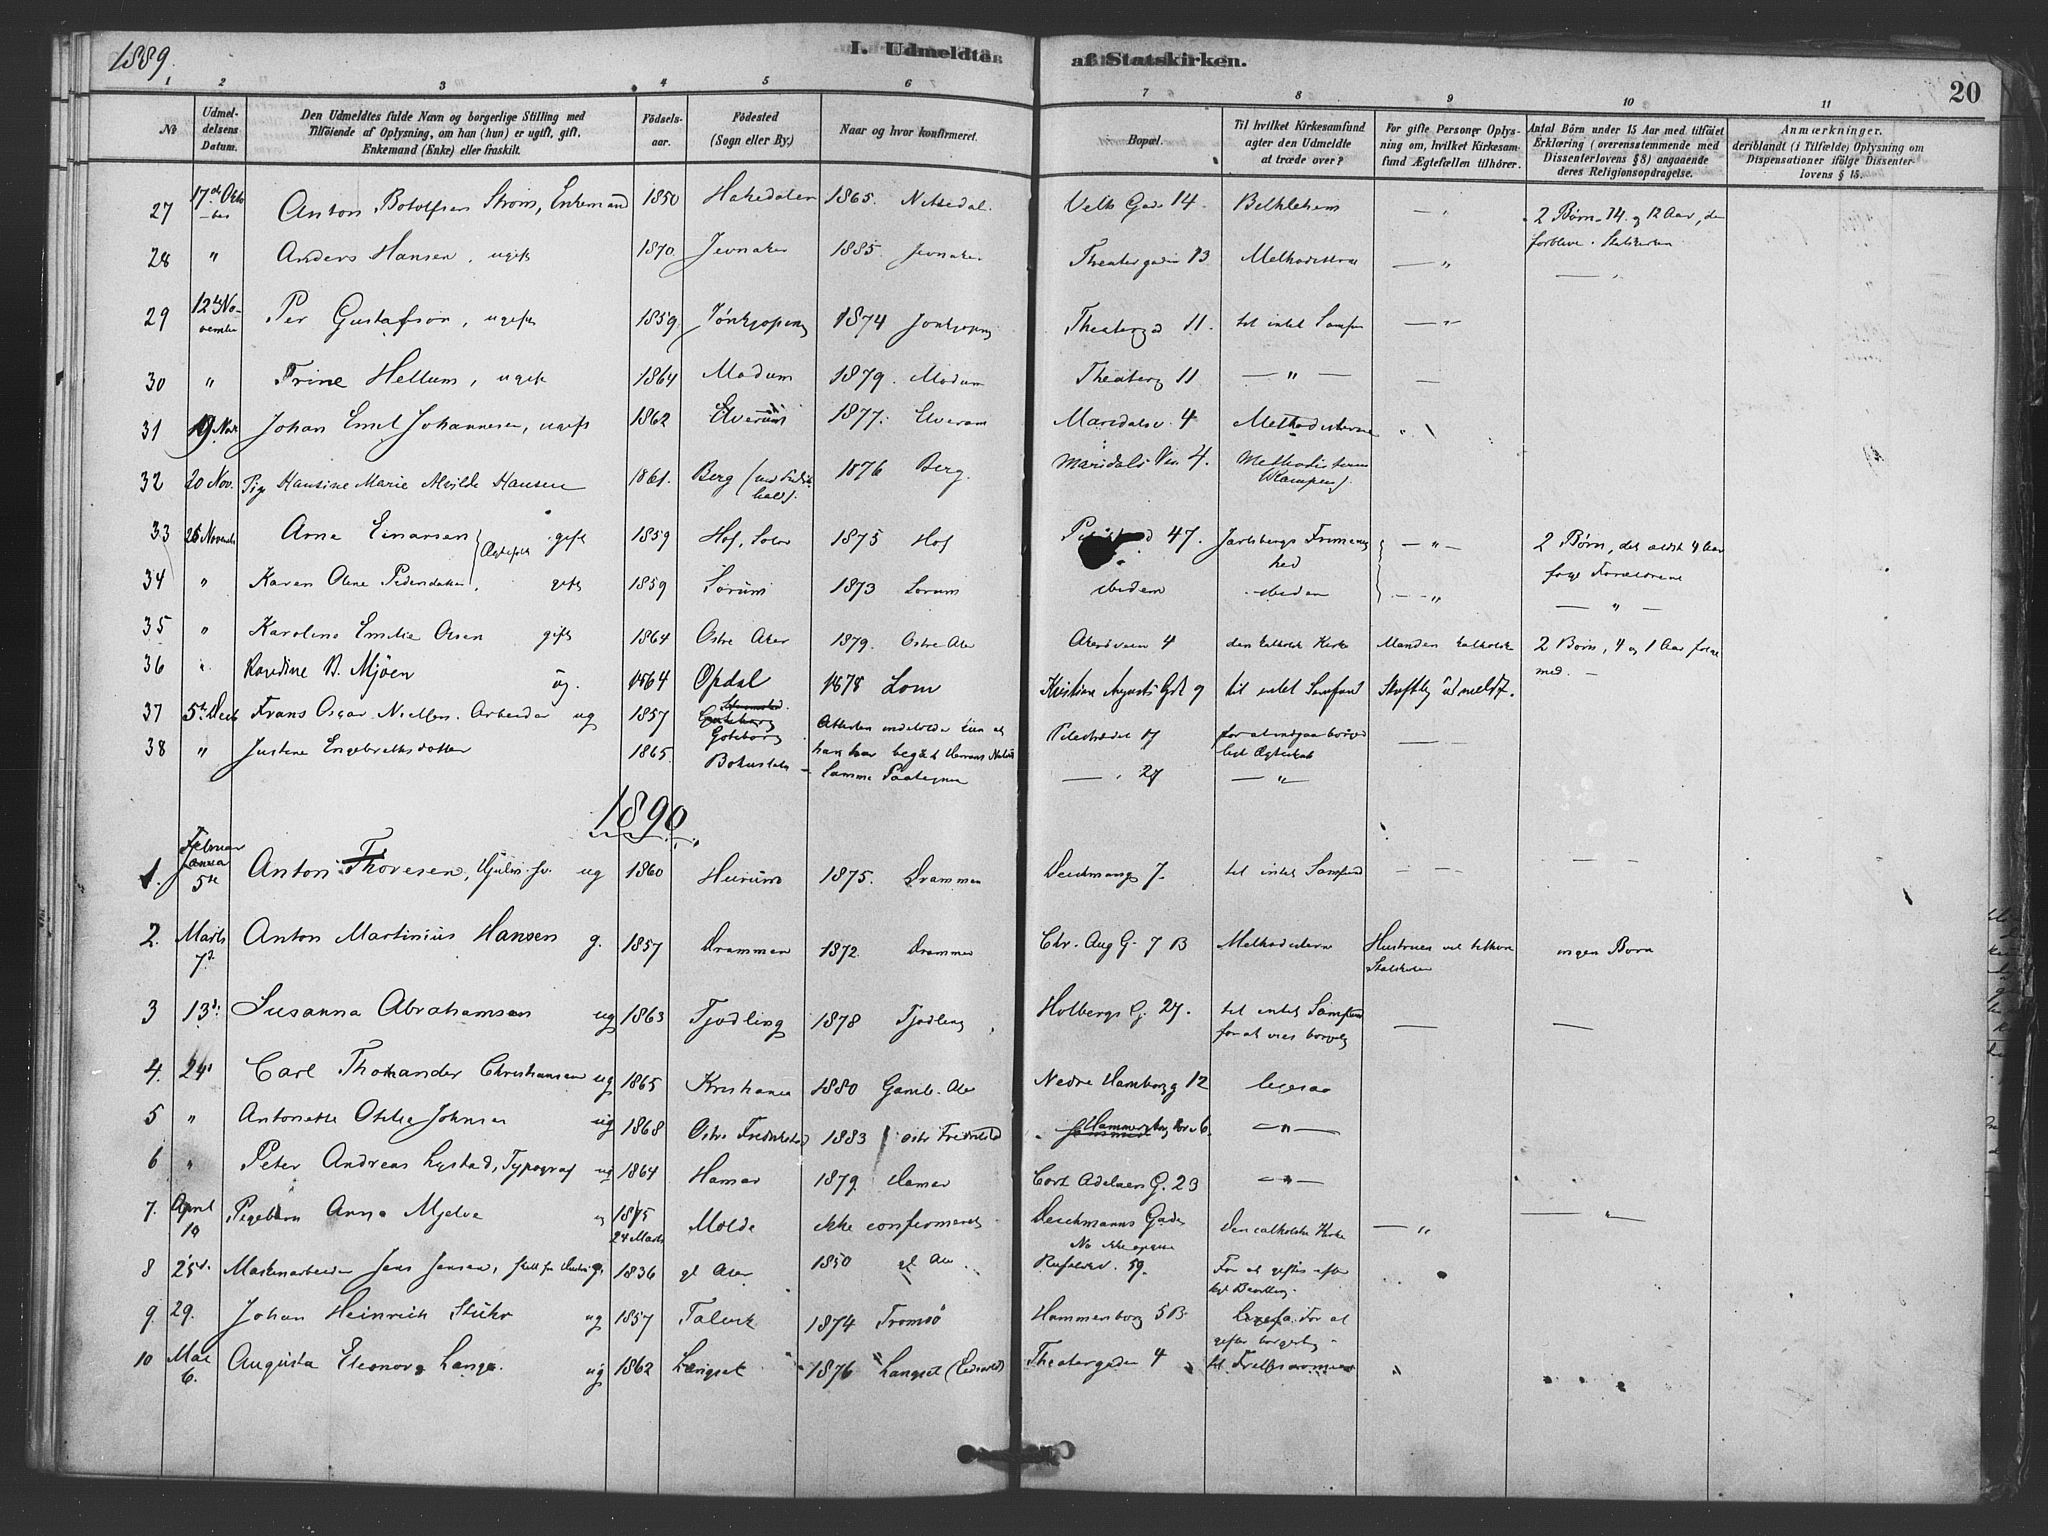 1889.
I. Udmeldte af Statskirken.
20
1 2 3 4 5 6 7 8 9 10 11
No
Udmeldelsens Datum.
Den Udmeldtes fulde Navn og borgerlige Stilling med Tilføiende af Oplysning, om han (hun) er ugift, gift, Enkemand (Enke) eller fraskilt.
Fødselsaar.
Fødested (Sogn eller By.)
Naar og hvor konfirmeret.
Bopæl.
Til hvilket Kirkesamfund agter den Udmeldte at træde over?
For gifte Personer Oplysning om, hvilket Kirkesamfund Ægtefællen tilhører.
Antal Børn under 15 Aar med tilføiet Erklæring (overensstemmende med Dissenterlovens § 8) angaaende deres Religionsopdragelse.
Anmærkninger. deriblandt (i Tilfælde) Oplysning om Dispensationer ifølge Dissenterlovens § 15.
27 17d Octobe Anton Botolfsen Strøm, Enkemand 1850 Hakedalen 1865. Nittedal. Velh Gade 14 Bethlehem — " 2 Børn 14 og 12 Aar, den
forblive i Statskirken
28 " Anders Hansen, ugift 1870. Jevnaker 1885. Jevnaker Theatergaden 13 Methodisterne — " — "
29 12te November Per Gustafson, ugift 1859. Jönkjöping 1874 Jonkjoping Theaterg 11. til intet Samfun — "
30 " Trine Hellum, ugift 1864 Modum 1879. Modum Theaterg 11 — " — —
31 19 Nov Johan Emil Johannesen, ugift 1862 Elverum 1877. Elverum Marsdalsv. 4 Methodisterne "
32 20 Nov. Pige Hansine Marie Alvilde Hansen 1861. Berg (ved Fredrikhald). 1876 Berg. Marsdals Vn 4. Methodisterne
(Kampen).
33 25 November Arne Einarsen gift Ægtefolk 1859 Hof, Solør 1875 Hof 47. Jarlsbergs Frimenighed — " — 2 Børn, det ældst 4 Aar
følge Forældrene
34 " Karen Oline Pedersdatter, gift 1859 Sørum 1873 Sørum ibidem ibidem — " — " —
35 " Karoline Emilie Olsen gift 1864 Østre Aker 1879. Østre Aker Akersveien 4 den katholsk Kirke Manden katholsk 2 Børn, 4 og 1 Aar følge
med. —
36 " B. Mjøen ug. 1864 Opdal 1878 Lom Kristine Augusts Gd. 9 til intet Samfund udmeldt.
37 5te Decb Frans Oscar Niellsen. Arbeider ug 1857 Göteborg Attesten indeholder kun at
han har begaaet Herrens Nadver Pilestrædet 27 for at indgaa borgerligt Ægteskab —
38 " Justine Engebrettsdotter 1865. Bohuslän — Samme Paategning — " 27 — "
1890
1. Februar 5te Anton Thoresen, ug 1860 Hurum 1875. Drammen Deichmansg 7. til intet Samfund — — — —
2. Marts 7d Anton Martinius Hansen g. 1857 Drammen 1872. Drammen Chr. Aug G. 7 B Methodisterne Hustruen vil tilhøre
Statskirken ingen Børn
3 13d. Susanna Abrahamsen ug 1863 Tjødling 1878 Tjødling Holbergs G. 27. til intet Samfund
for at vies borgerlig — —
4. 24d Carl Thorander Christiansen ug 1865 Kristiania 1880 Gamle Aker Nedre Hamborg 12 ligesaa
5 " Antonette Otilie Johnsen ug 1868 Østre Fredrikstad 1883 østr Fredrikstad Hammersborg Torv 6. — " —
6 " Peter Andreas Lystad, Typograf ug 1864 Hamar 1879. Hamar Cort Adelaers G. 23 — " —
7. April 19 Pigebarn Anna Mjelve ug 1875
24 Marts Molde ikke confirmeret Deichmanns Gade
No ikke opgivet Den catholske Kirke — " — "
8 25d. Maskinarbeider Jens Jansen, g. 1836 gl Aker 1850 gl Aker 59. For at giftes efter
kgl Bevilling.
9. 29. Johan Heinrich Stuhr ug 1857 Talvik 1874 Tromsö Hammersborg 5 B. Ligesaa. For at
giftes borgerlig
10 Mai 6. Augusta Eleonora Lange. ug 1862 Langset 1876 Langset (Eidsvold) Theatergaden 4 til Frelsesarmeen "